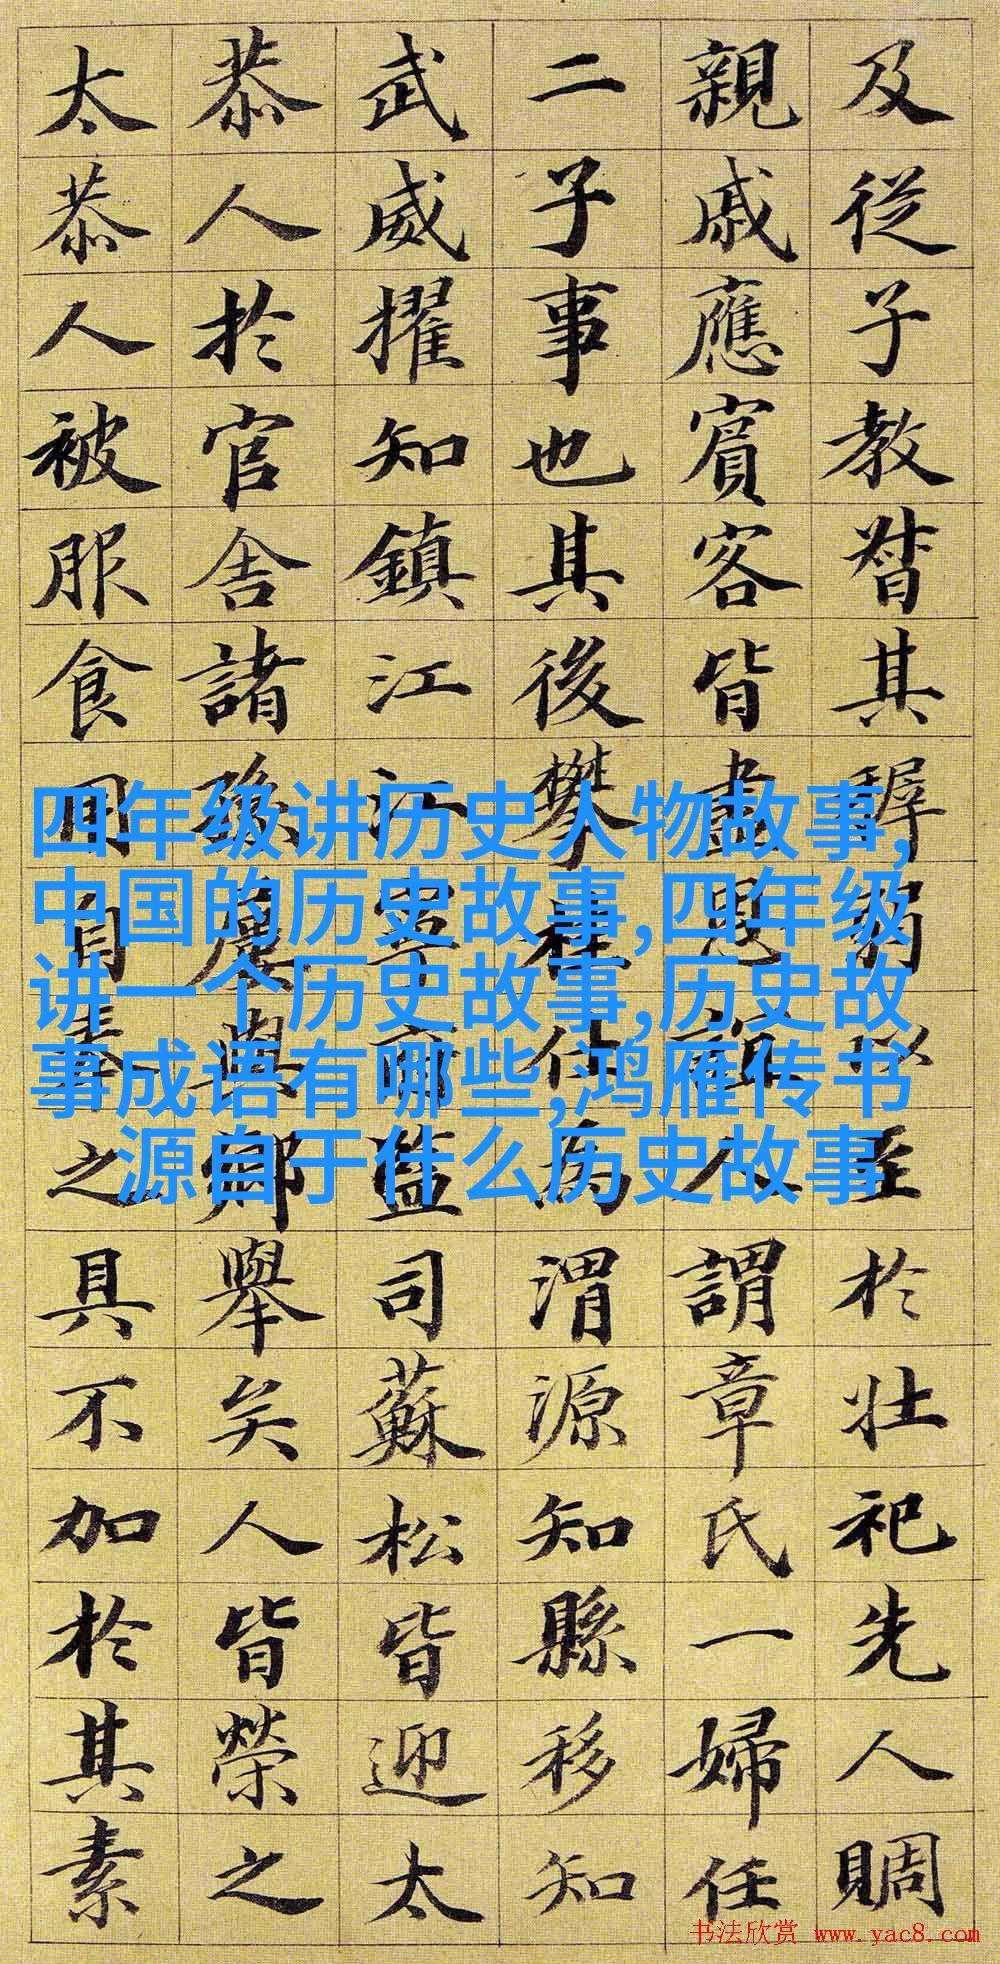 及從子教督其孱弱以至於壯祀先人賙
親戚應賓客皆盡恩人謂章氏一婦任
二子事也其後攀桂仕為渭源知縣移知
武威擢知鎮江江寧兩監司蘇松皆迎太
恭人於官舍諸孫慶與鄉舉矣人皆榮之
太恭人被服食用自奉之具不加於其素
四年级讲历史人物故事,
中国的历史故事,四年级
讲一个历史故事,历史故
事成语有哪些,鸿雁传书
源自于什么历史故事
书法欣赏 www.yac8.com